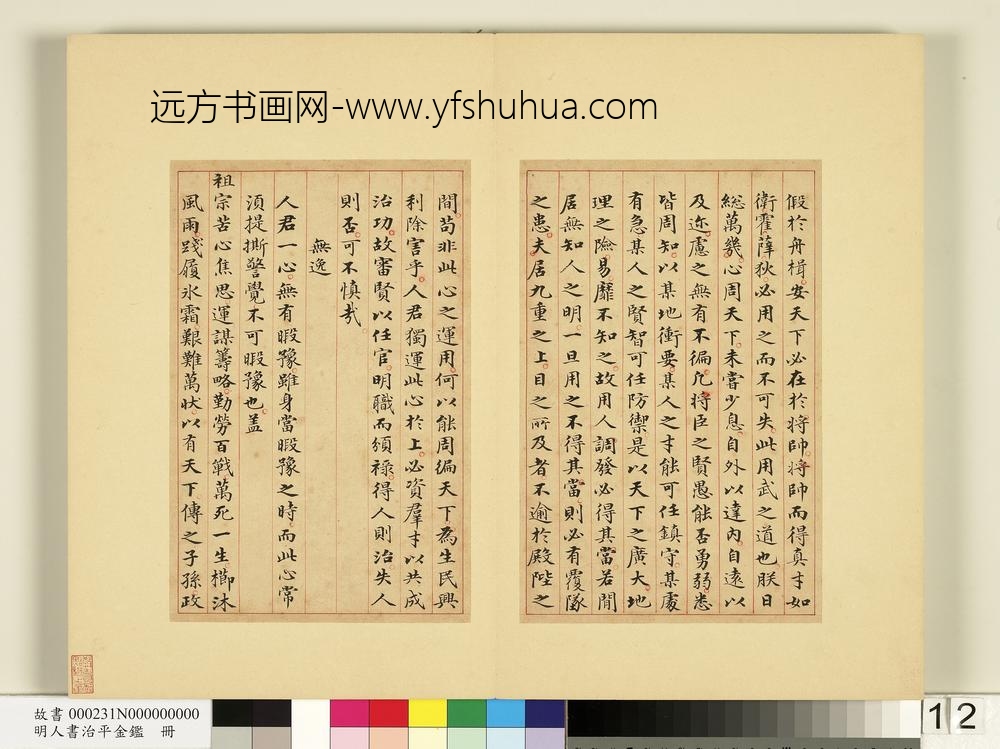 远方书画网-www.yfshuhua.com
假於舟楫安天下必在於將帥將帥而得真才如
衛霍薛狄必用之而不可失此用武之道也朕日
總萬幾心周天下未嘗少息自外以達內自遠以
及迩慮之無有不徧凡將臣之賢愚能否勇弱悉
皆周知以某地衝要某人之才能可任鎮守某處
有急某人之賢智可任防禦是以天下之廣大地
理之險易靡不知之故用人調發必得其當若閒
居無知人之明一旦用之不得其當則必有覆隊
之患夫居九重之上目之所及者不逾於殿陛之
間苟非此心之運用何以能周徧天下為生民興
利除害乎人君獨運此心於上必資羣才以共成
治功故審賢以任官明職而頒祿得人則治失人
則否可不慎哉
無逸
人君一心無有暇豫雖身當暇豫之時而此心常
須提撕警覺不可暇豫也盖
祖宗苦心焦思運謀籌略勤勞百戰萬死一生櫛沐
風雨踐履氷霜艱難萬狀以有天下傳之子孫政
故書 000231N000000000
明人書治平金鑑 冊
12